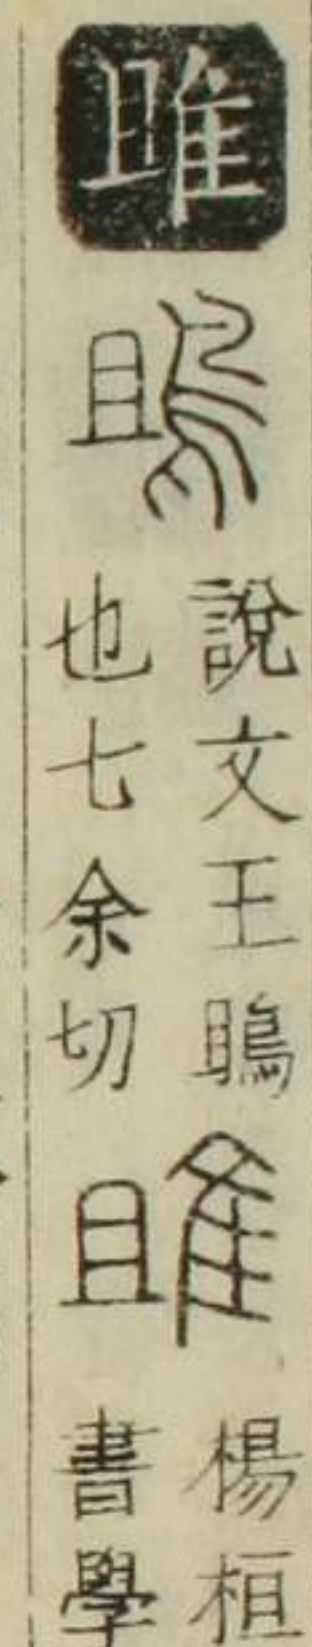 雎
鴡
說文王鴡
也七余切
雎
楊桓
書學